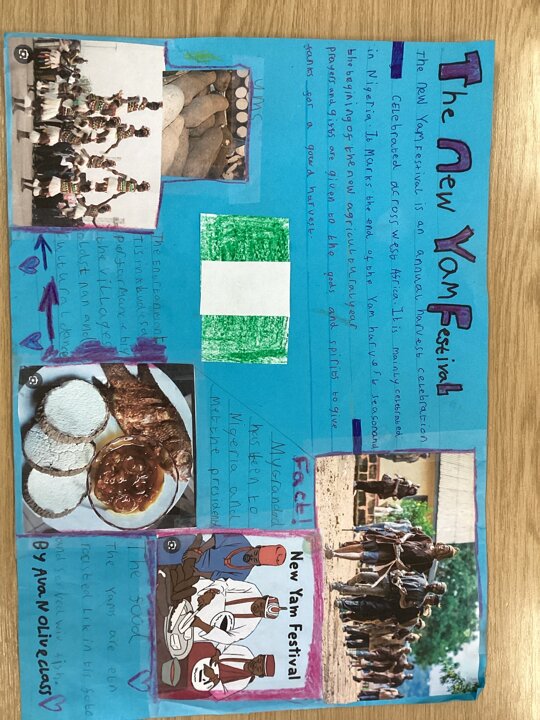 The New Yam Festival
The new Yam Festival is an annual harvest celebration
celebrated across west Africa. It is mainly celebrated
in Nigeria. It Marks the end of the Yam harvest season and
the beginning of the new agricultural year
prayers and gifts are given to the gods and spirits to give
for a gowd harvest.
yams
Fact!
My Grandad
has been to
Nigeria and
Met the president
New Yam Festival
performance by
the villages
oldest man and
cultural dance
The Food
The Yam are
By Ava N Olive class